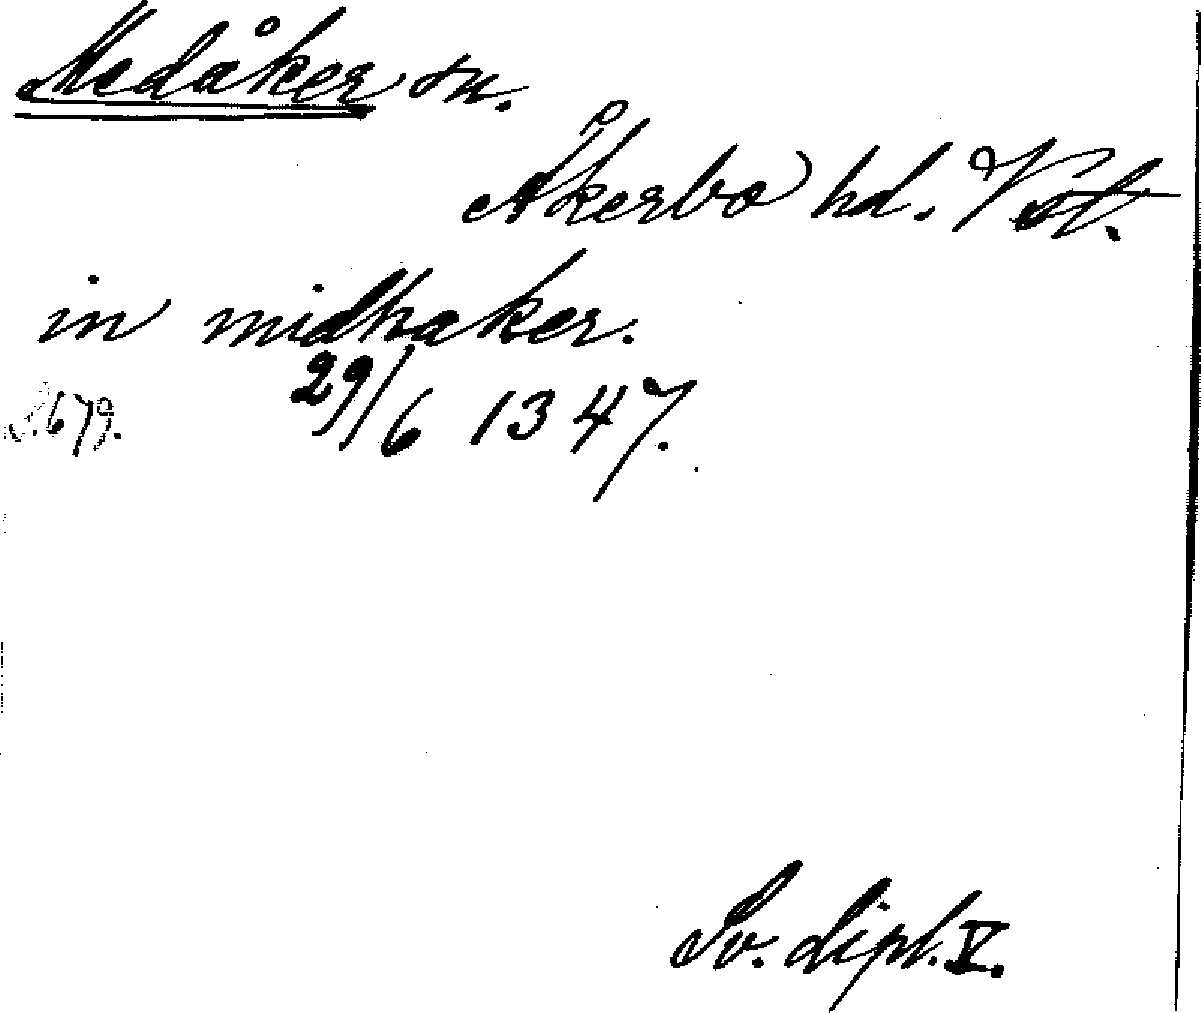 Medåker sn.
Åkerbo hd. Vstl.
in midhaker.
29/6 1347.
s. 679.
Sv. dipl. V.